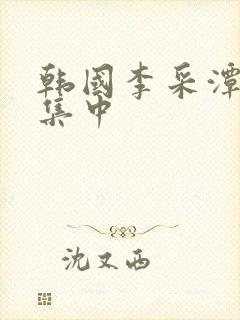 韩国李采潭
集中
沈又西